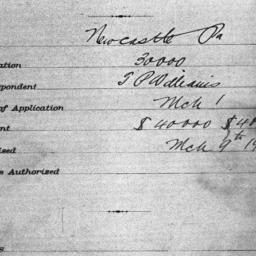 Newcastle Pa
ation 30000
pondent J P Williams
of Application Mch 1
nt $40000 $48
ized Mch 9th 19
e Authorized
s